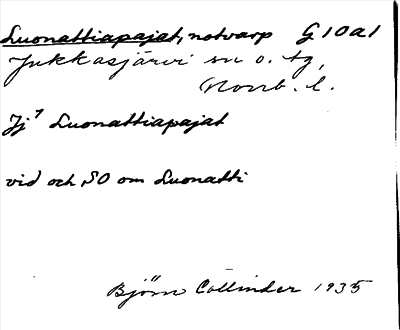 Luonattiapajat, notvarp G10a1
Jukkasjärvi sn o. tg,
Norrb. l.
Jj⁷ Luonattiapajat
vid och SO om Luonatti
Björn Collinder 1935